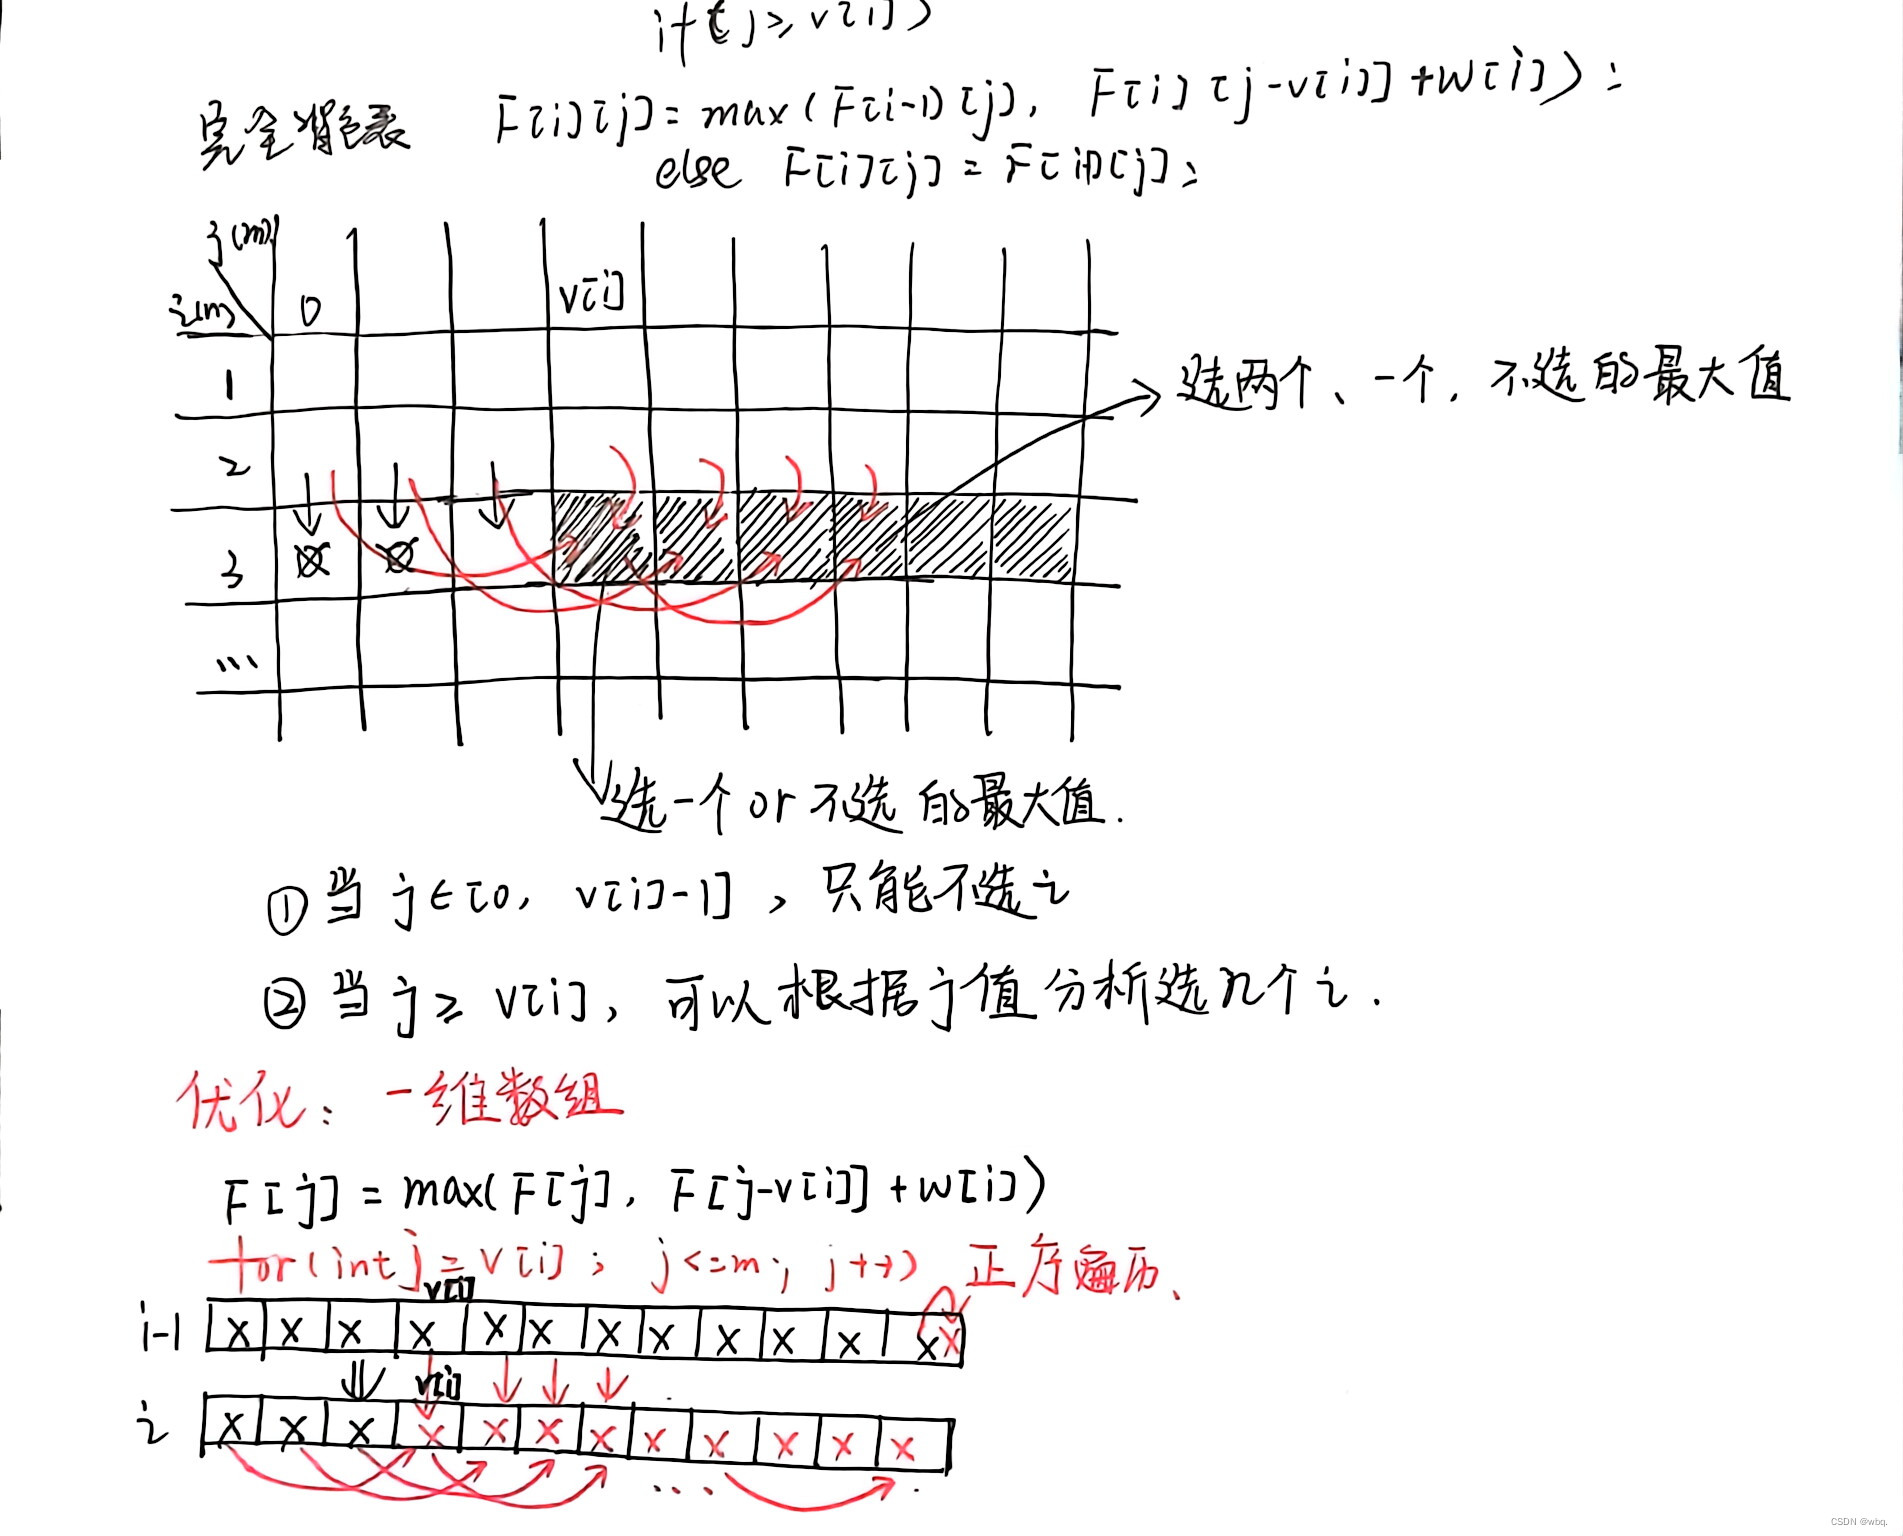 if(j≥v[i])
完全背包 F[i][j]=max(F[i-1][j], F[i][j-v[i]]+w[i]);
else F[i][j]=F[i-1][j];
j(m)
i(n) 0 v[i]
1
选两个、一个,不选的最大值
2
3
...
选一个or不选的最大值.
①当j∈[0, v[i]-1],只能不选i
②当j≥v[i],可以根据j值分析选几个i.
优化:一维数组
F[j]=max(F[j], F[j-v[i]]+w[i])
for(int j=v[i]; j<=m; j++) 正序遍历、
v[i]
i-1 x x x x x x x x x x x x x
v[i]
i x x x x x x x x x x x x
...
CSDN @wbq.